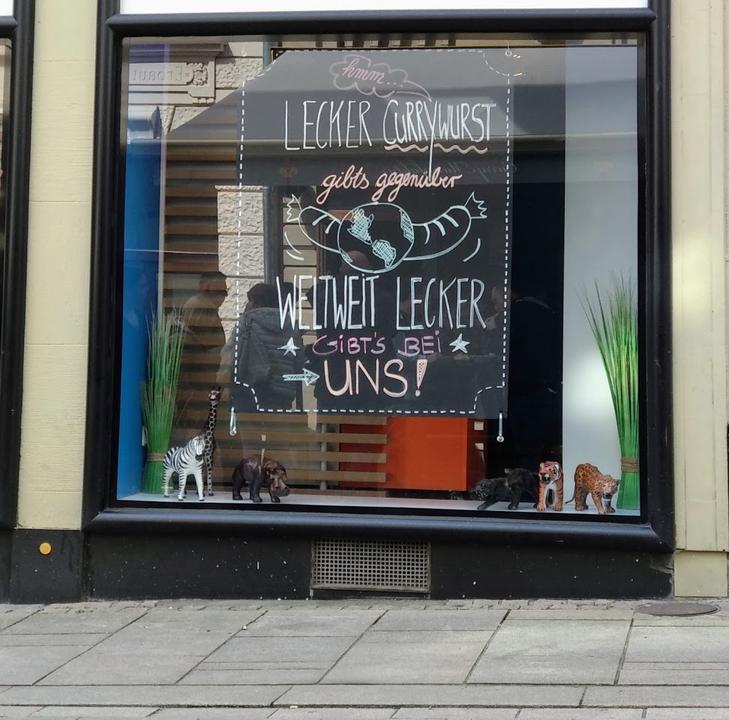 hmm...
LECKER CURRYWURST
gibts gegenüber
WELTWEIT LECKER
GIBT'S BEI
UNS!